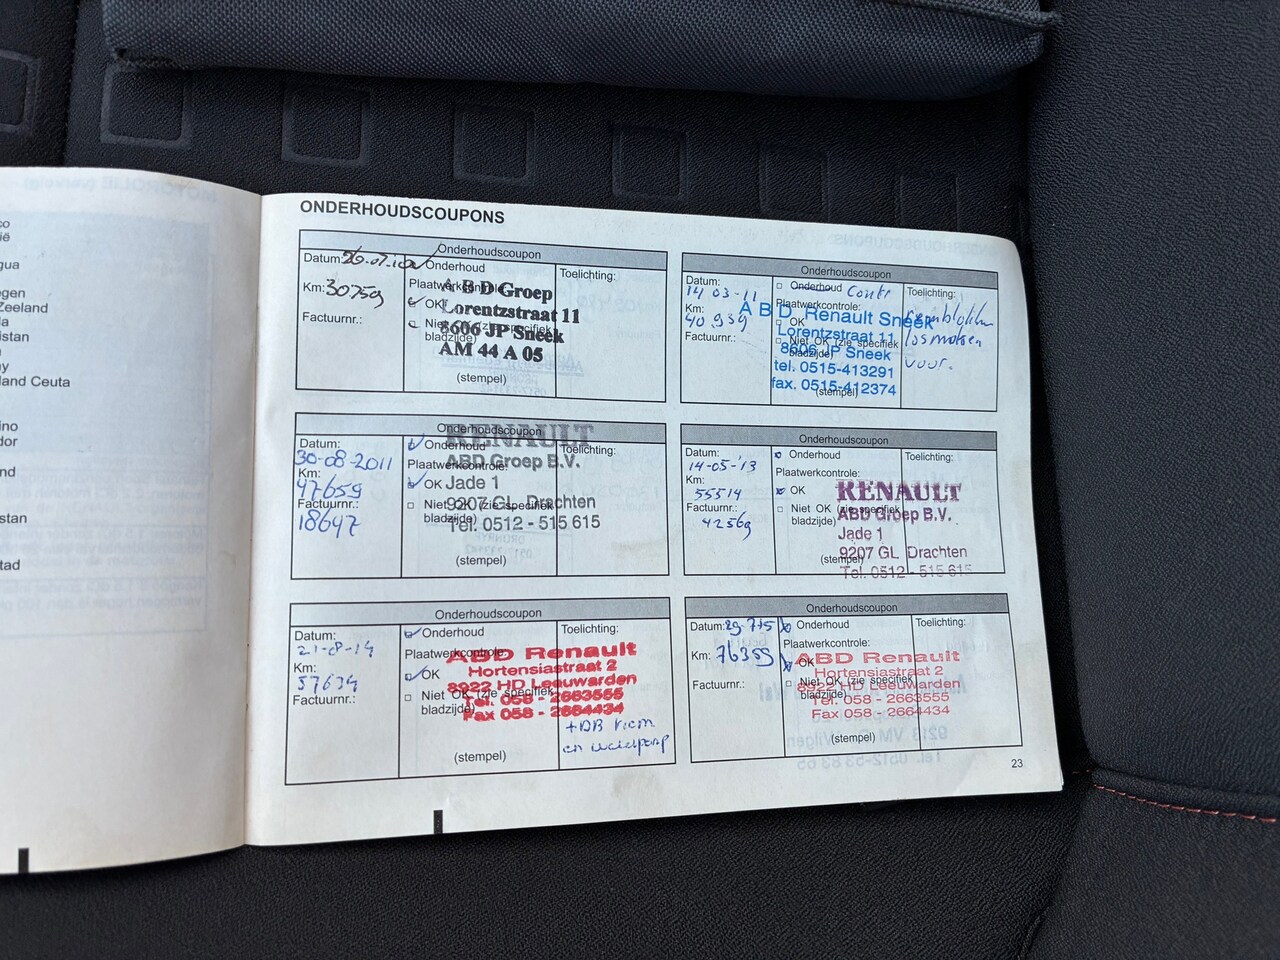 co
ië
gua
egen
Zeeland
la
istan
n
ey
and Ceuta
ino
dor
nd
stan
stad
ONDERHOUDSCOUPONS
Onderhoudscoupon
Datum: 26-07-10
Km: 30759
Factuurnr.:
Onderhoud
Plaatwerkcontrole:
OK
Niet OK (zie specifiek
bladzijde)
(stempel)
Toelichting:
A B D Groep
Lorentzstraat 11
8606 JP Sneek
AM 44 A 05
Onderhoudscoupon
Datum:
14 03-11
Km:
40 939
Factuurnr.:
Onderhoud
Plaatwerkcontrole:
OK
Niet OK (zie specifiek
bladzijde)
(stempel)
Toelichting:
voor.
A B D Renault Sneek
Lorentzstraat 11
8606 JP Sneek
tel. 0515-413291
fax. 0515-412374
Onderhoudscoupon
Datum:
30-08-2011
Km:
47659
Factuurnr.:
18647
Onderhoud
Plaatwerkcontrole:
OK
Niet OK (zie specifiek
bladzijde)
(stempel)
Toelichting:
RENAULT
ABD Groep B.V.
Jade 1
9207 GL Drachten
Tel. 0512 - 515 615
Onderhoudscoupon
Datum:
14-05-'13
Km:
55514
Factuurnr.:
42569
Onderhoud
Plaatwerkcontrole:
OK
Niet OK (zie specifiek
bladzijde)
(stempel)
Toelichting:
RENAULT
ABD Groep B.V.
Jade 1
9207 GL Drachten
Tel. 0512 - 515 615
Onderhoudscoupon
Datum:
21-08-14
Km:
57639
Factuurnr.:
Onderhoud
Plaatwerkcontrole:
OK
Niet OK (zie specifiek
bladzijde)
(stempel)
Toelichting:
ABD Renault
Hortensiastraat 2
8922 HD Leeuwarden
Tel. 058 - 2663555
Fax 058 - 2664434
+ DB riem
en waterpomp
Onderhoudscoupon
Datum: 29-7-15
Km: 76359
Factuurnr.:
Onderhoud
Plaatwerkcontrole:
OK
Niet OK (zie specifiek
bladzijde)
(stempel)
Toelichting:
ABD Renault
Hortensiastraat 2
8922 HD Leeuwarden
Tel. 058 - 2663555
Fax 058 - 2664434
23